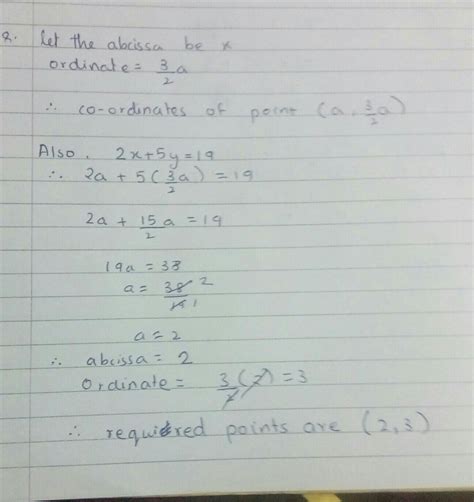 2. let the abcissa be x
ordinate = 3/2 a
∴ co-ordinates of point (a, 3/2 a)
Also, 2x+5y=19
∴ 2a + 5(3/2 a) = 19
2a + 15/2 a = 19
19a = 38
a = 38/19 2 1
a = 2
∴ abcissa = 2
Ordinate = 3/2 (2) = 3
∴ required points are (2,3)